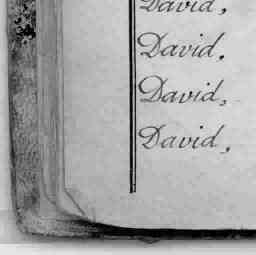 David,
David.
David,
David,